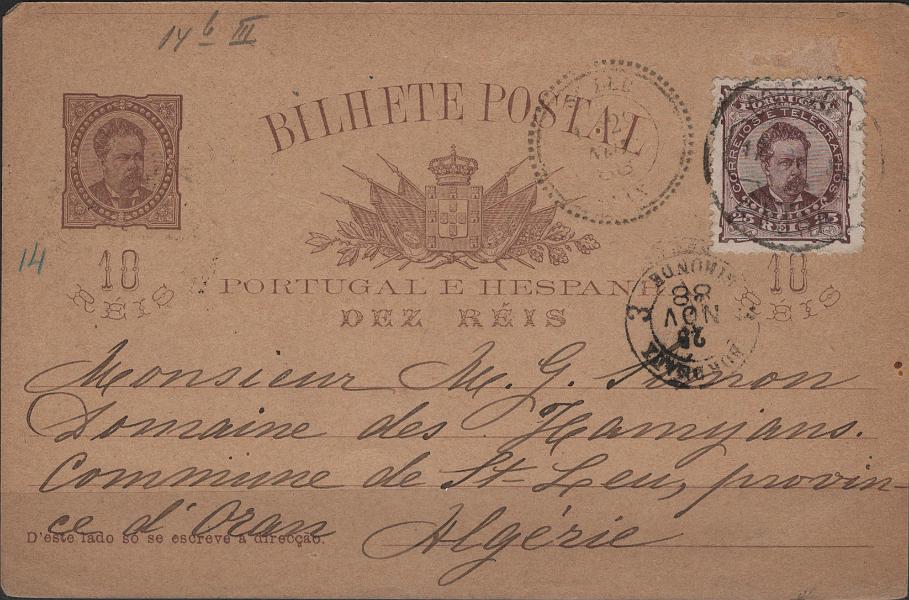 14 b III
BILHETE POSTAL
PORTUGAL
CORREIOS E TELEGRAPHOS
25 REIS 25
14
10
RÉIS
10
RÉIS
PORTUGAL E HESPANH
DEZ RÉIS
27
NOV
88
3
25
NOV
88
Monsieur M. G. Simon
Domaine des Hamyans.
Commune de St-Leu, provin-
ce d'Oran
Algérie
D'este lado só se escreve a direcção.